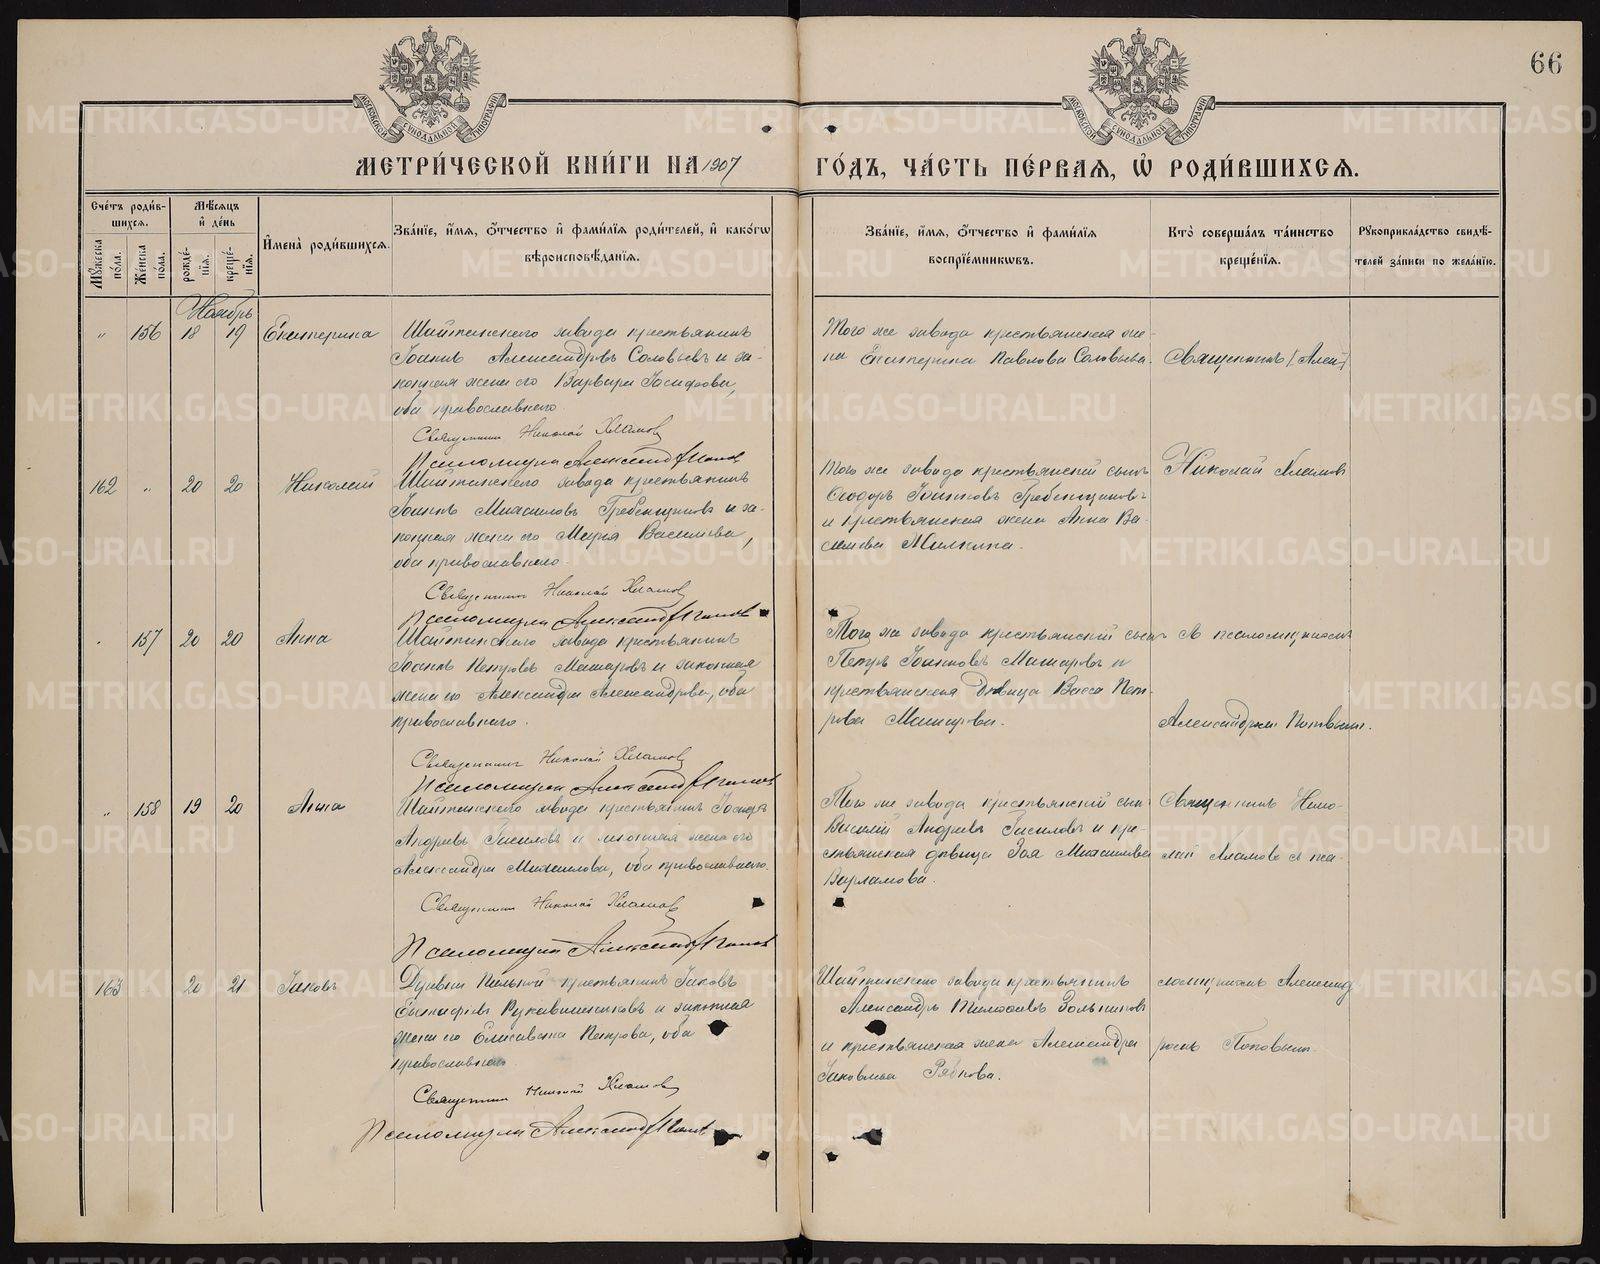 66
МОСКОВСКОЙ СѴНОДАЛЬНОЙ ТИПОГРАФІИ
МОСКОВСКОЙ СѴНОДАЛЬНОЙ ТИПОГРАФІИ
МЕТРИ́ЧЕСКОЙ КНИ́ГИ НА 1907
ГО́ДЪ, ЧА́СТЬ ПЕ́РВАѦ, Ѡ҆ РОДИ́ВШИХСѦ.
Сче́тъ роди́в-
шихсѧ.
Мꙋжеска по́ла.
Же́нска по́ла.
Мѣ́сѧцъ
и҆ де́нь
рожде́-
нїѧ.
креще́-
нїѧ.
И҆мена̀ роди́вшихсѧ.
Зва́нїе, и҆́мѧ, ѻ҆́тчество и҆ фами́лїѧ роди́телей, и҆ како́гѡ
вѣроисповѣ́данїѧ.
Зва́нїе, и҆́мѧ, ѻ҆́тчество и҆ фами́лїѧ
воспрїе́мникѡвъ.
Кто̀ соверша́лъ та́инство
креще́нїѧ.
Рꙋкоприкла́дство свидѣ́-
телей за́писи по жела́нїю.
Ноябрь
" 156 18 19 Екатерина
Шайтанскаго завода крестьянинъ
Іоаннъ Александровъ Соловьевъ и за-
конная жена его Варвара Іосифова,
оба православнаго.
Священникъ Николай Хламов
Псаломщикъ Александр
Того же завода крестьянская же-
на Екатерина Павлова Соловьева.
Священникъ
162 " 20 20 Николай
Шайтанскаго завода крестьянинъ
Іоаннъ Михаиловъ Гребенщиковъ и за-
конная жена его Марія Васильева,
оба православнаго.
Священникъ Николай Хламов
Псаломщикъ Александр
Того же завода крестьянскій сынъ
Ѳеодоръ Іоанновъ Гребенщиковъ
и крестьянская жена Анна Ва-
сильева
Николай Хламовъ
157 20 20 Анна
Шайтанскаго завода крестьянинъ
Іоаннъ Петровъ Машаровъ и законная
жена его Александра Александрова, оба
православнаго.
Священникъ Николай Хламов
Псаломщикъ Александр
Того же завода крестьянскій сынъ
Петръ Іоанновъ Машаровъ и
крестьянская дѣвица Васса Пет-
рова Машарова.
съ псаломщикомъ
Александромъ Поповымъ.
" 158 19 20 Анна
Шайтанскаго завода крестьянинъ
Андреевъ и законная жена его
Александра Михаилова, оба православнаго.
Священникъ Николай Хламов
Псаломщикъ Александр
Того же завода крестьянскій сынъ
Василій Андреевъ и кре-
стьянская дѣвица Зоя Михаилова
Варламова.
Священникъ Нико-
лай Хламовъ съ пса-
163 20 21 Іаковъ
Деревни крестьянинъ Іаковъ
Рукавишниковъ и законная
жена его Елисавета Петрова, оба
православнаго.
Священникъ Николай Хламов
Псаломщикъ Александр
Шайтанскаго завода крестьянинъ
Александръ
и крестьянская жена Александра
Іаковлева
ломщикомъ Александ
ромъ Поповымъ.
METRIKI.GASO-URAL.RU